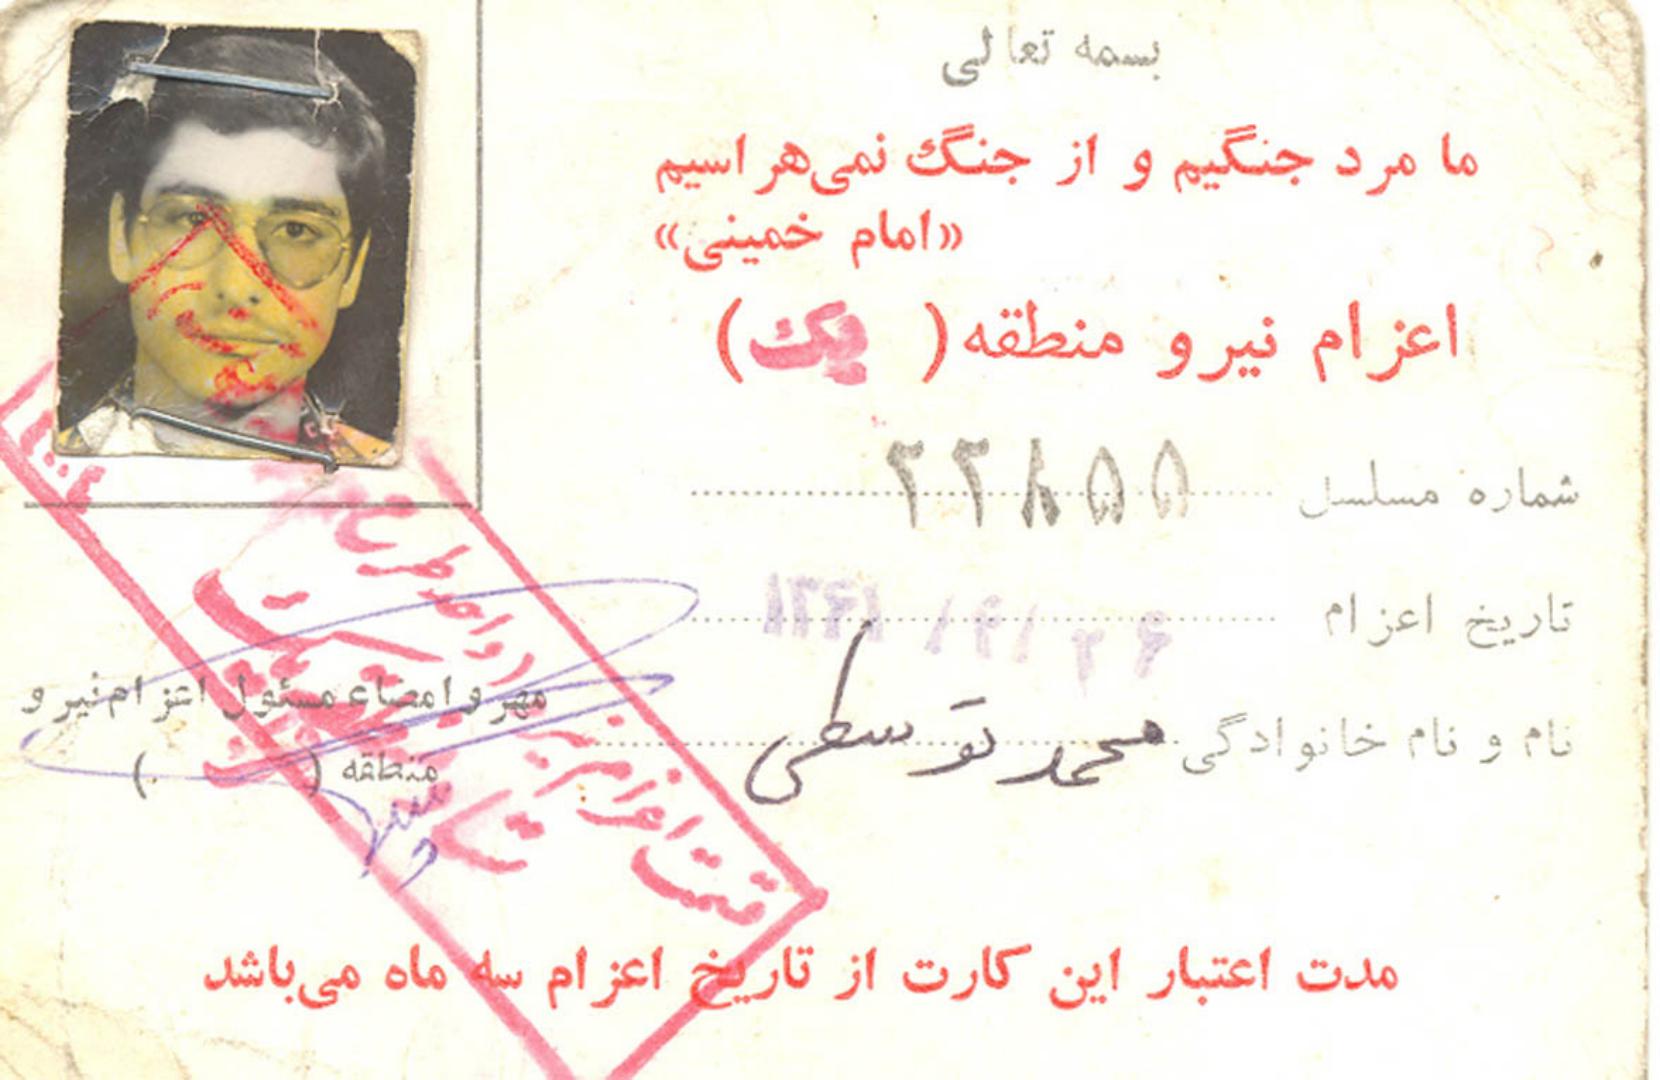 بسمه تعالی
ما مرد جنگیم و از جنگ نمی‌هراسیم
«امام خمینی»
اعزام نیرو منطقه ( یک )
شماره مسلسل ۲۲۸۵۵
تاریخ اعزام ۲۶ / ۴ / ۱۳۶۱
نام و نام خانوادگی محمد توسطی
مهر و امضاء مسئول اعزام نیرو
منطقه ( )
قسمت اعزام نیرو
مدت اعتبار این کارت از تاریخ اعزام سه ماه می‌باشد